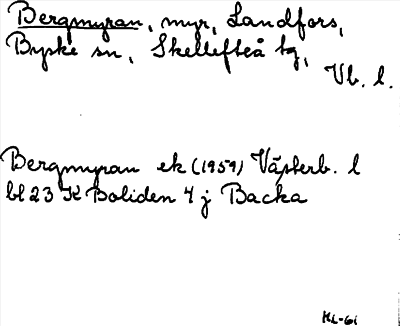 Bergmyran, myr, Landfors,
Byske sn, Skellefteå tg,
Vb. l.
Bergmyran ek (1959) Västerb. l
bl 23 K Boliden 4 j Backa
HL-61